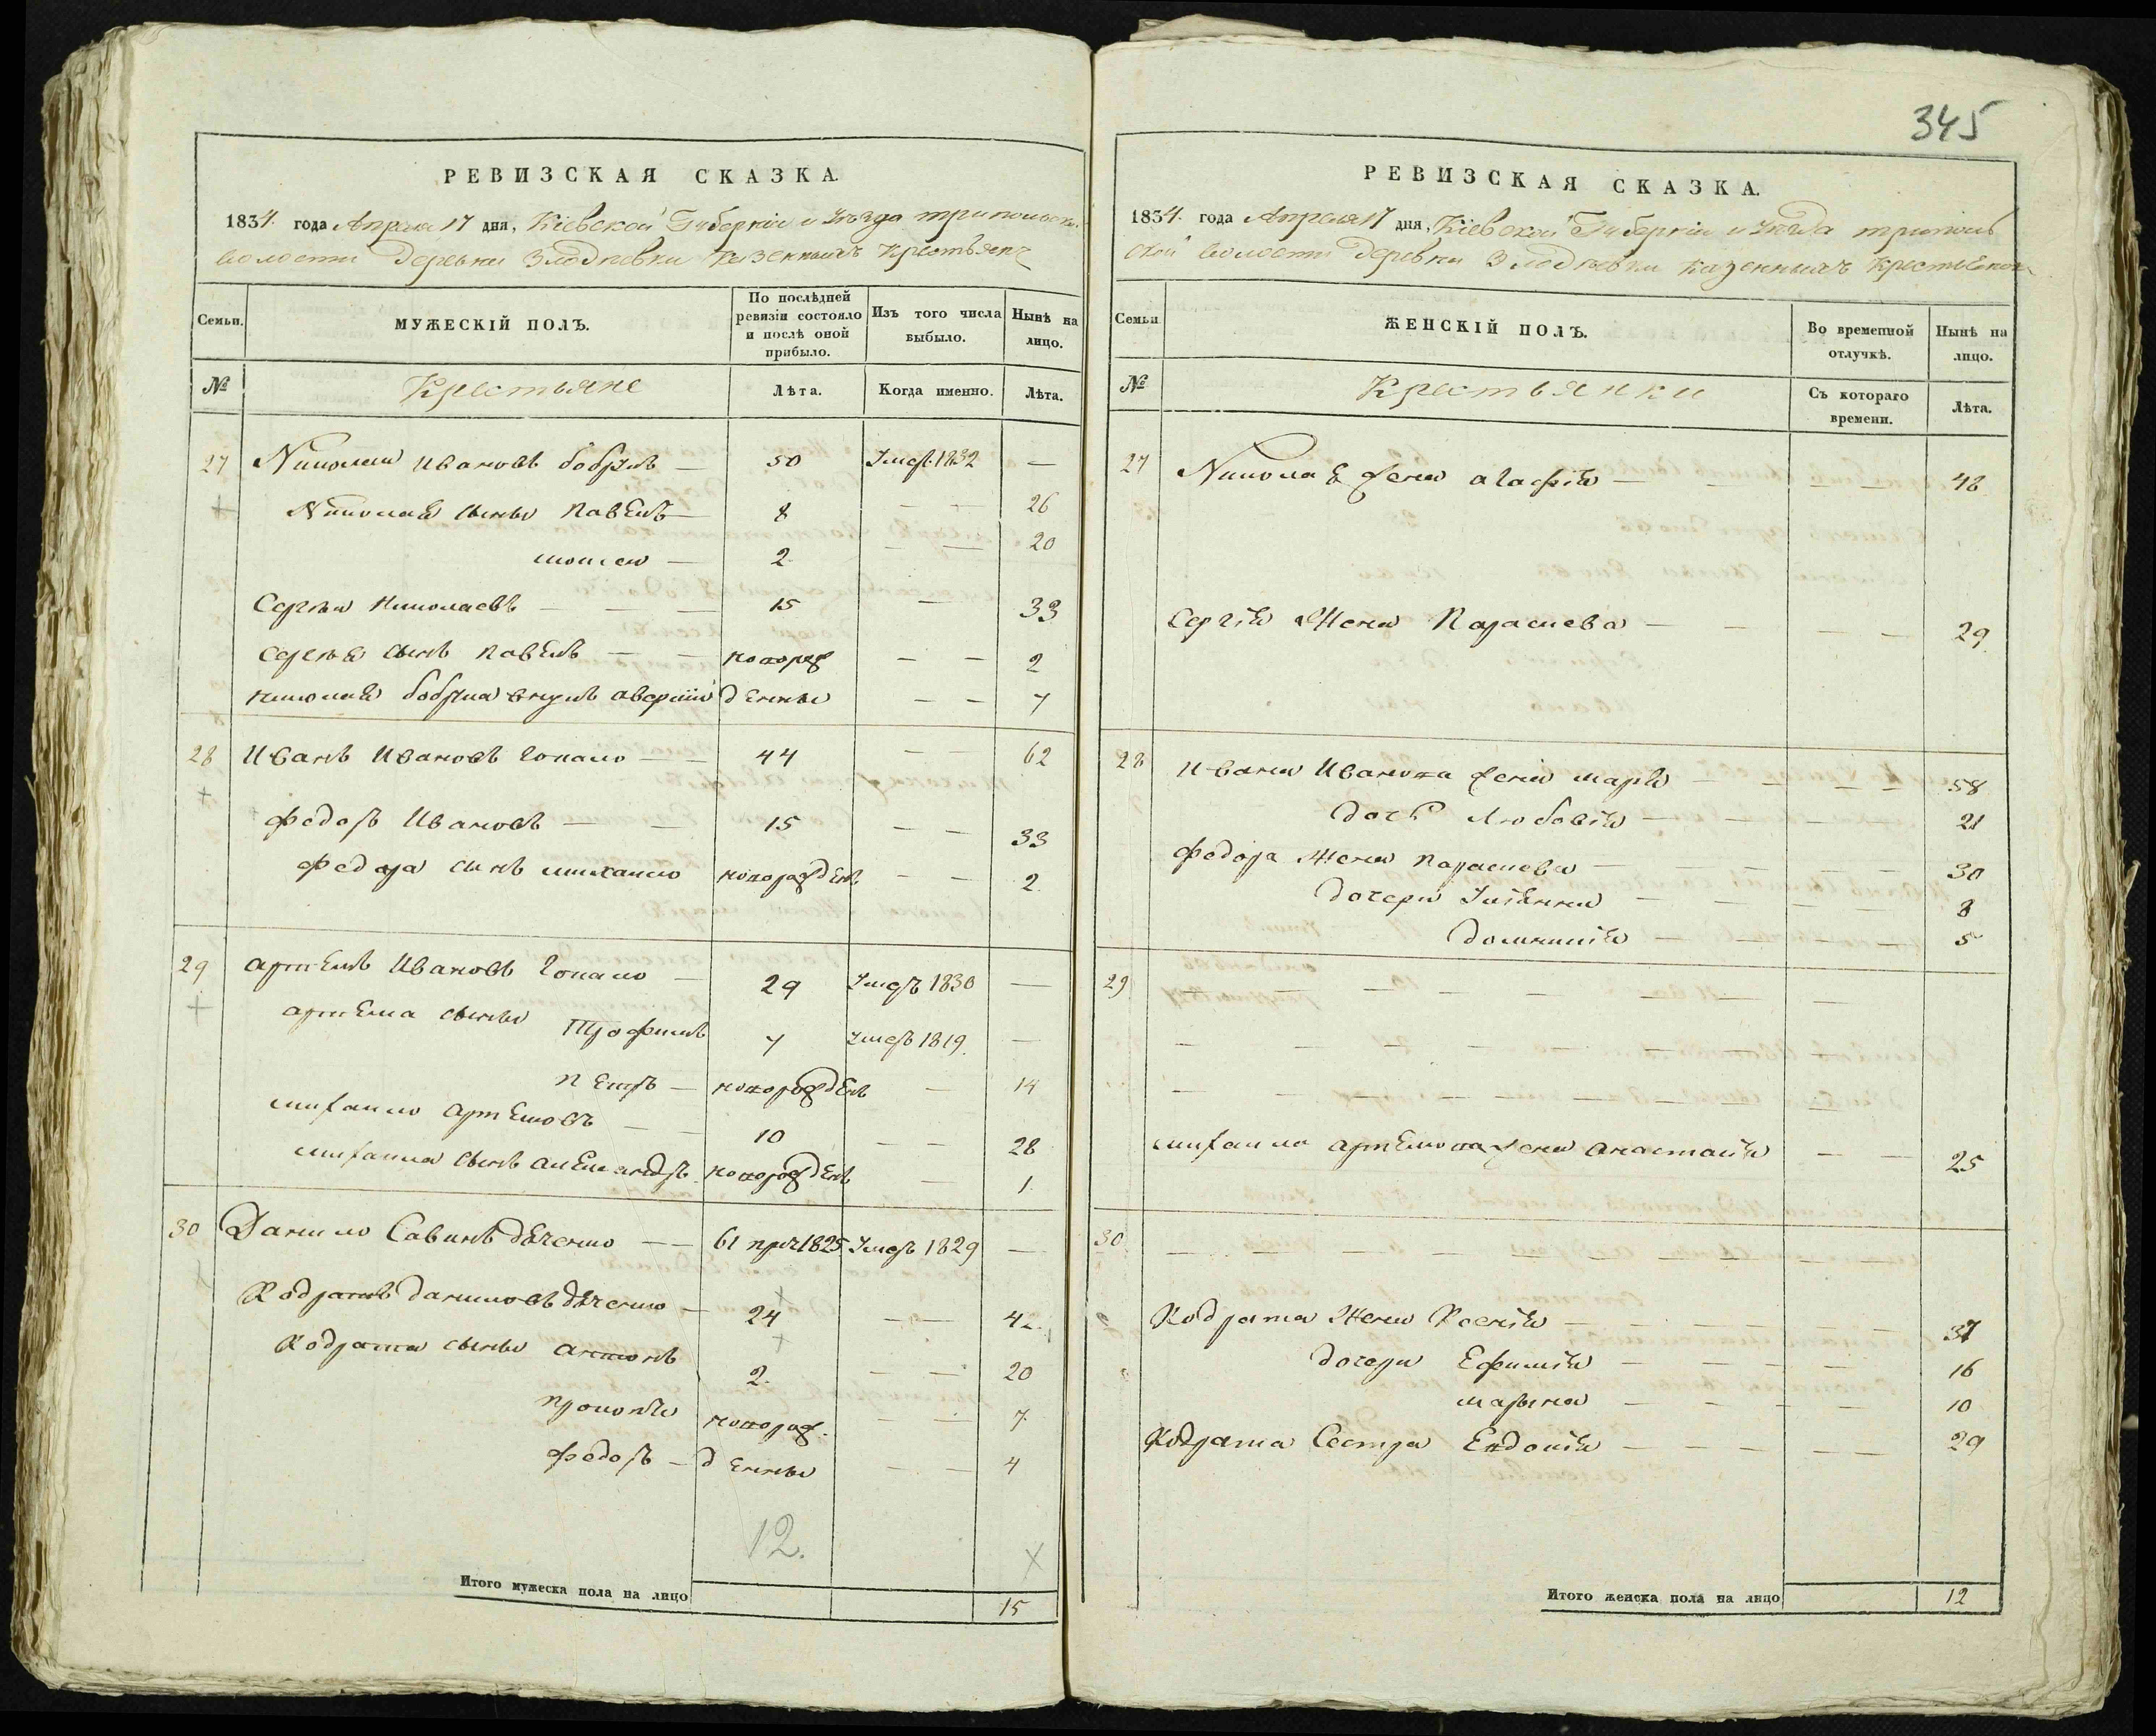 345
РЕВИЗСКАЯ СКАЗКА.
1834. года Апреля 17 дня, Кіевской Губерніи и уѣзда трипольской
волости деревни Злодѣевки казенныхъ крестьянъ
Семьи. МУЖЕСКІЙ ПОЛЪ. По послѣдней ревизіи состояло и послѣ оной прибыло. Изъ того числа выбыло. Нынѣ на лицо.
№ Крестьяне Лѣта. Когда именно. Лѣта.
27 Николай Ивановъ бобрикъ — 50 Умеръ 1832 —
Николая сыны Павелъ — 8 — — 26
моисей — 2 — — 20
Сергѣй Николаевъ — — — 15 — 33
Сергѣя сынъ Павелъ — — новорож — — 2
Николая бобрика внукъ аверкий денны — — 7
28 Иванъ Ивановъ Гопало — — 44 — — 62
федоръ Ивановъ — — 15 — — 33
федора сынъ михайло новорожденъ — — 2
29 артемъ Ивановъ Гопало — 29 Умеръ 1830 —
артема сыны Трофимъ 7 умеръ 1819. —
петръ — новорожденъ — 14
михайло артемовъ — — 10 — — 28
михайла сынъ александръ новорожденъ — 1.
30 Данило Савинъ дяченко — — 61 прич1825 Умеръ 1829 —
Кодратъ даниловъ дяченко — 24 — — 42.
Кодрата сыны антонъ 2. — — 20
прокопий новорож. — — 7.
федоръ — денны — — 4
12.
Итого мужеска пола на лицо 15
РЕВИЗСКАЯ СКАЗКА.
1834. года Апреля 17 дня, Кіевской Губерніи и уѣзда триполь
ской волости деревни Злодѣевки казенныхъ крестьянокъ
Семьи ЖЕНСКІЙ ПОЛЪ. Во временной отлучкѣ. Нынѣ на лицо.
№ Крестьянки Съ котораго времени. Лѣта.
27 Николая жена агафия — — — — 48
Сергія жена Параскева — — — — 29
28 Ивана Иванова жена мария — — — — 58
дочь Любовия — — — — 21
федора жена параскева — — — — 30
дочери Улияна — — — — 8
домникия — — — — 5
29 — — — —
михайла артемова жена анастасия — — 25
30 — — — —
Кодрата жена Ксения — — — — 37
дочери Ефимия — — — — 16
марина — — — — 10
Кодрата Сестра Евдокия — — — — 29
Итого женска пола на лицо 12